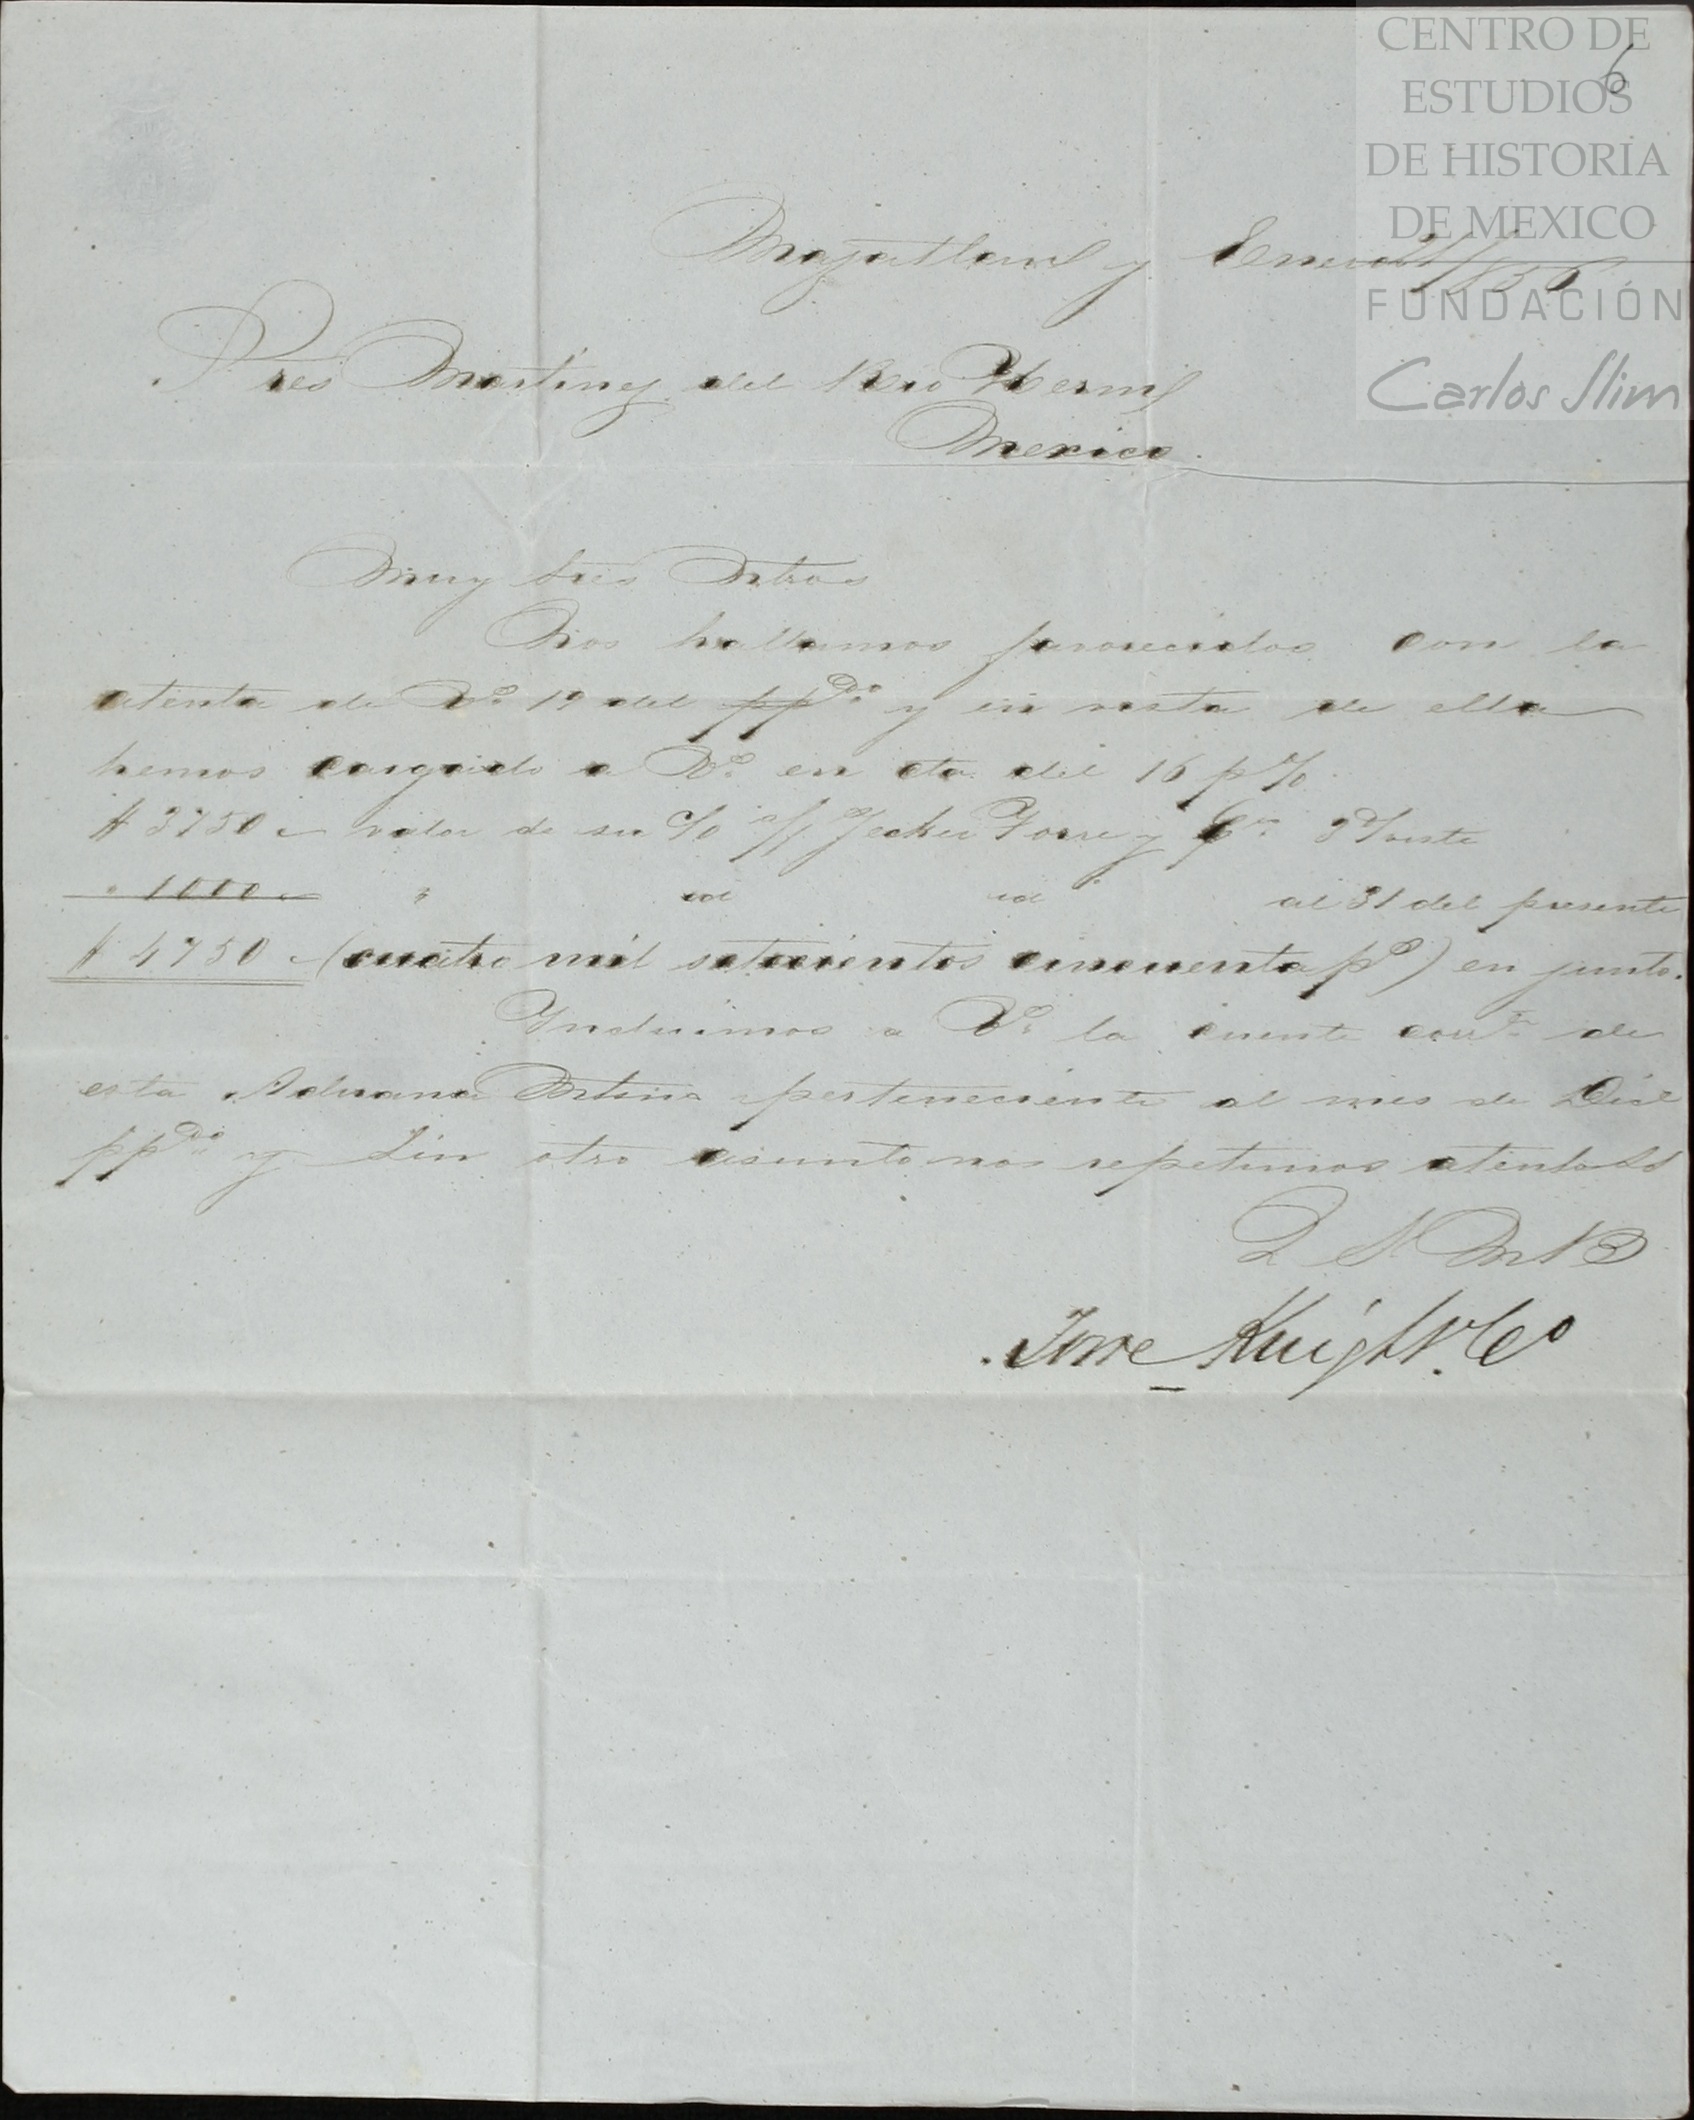 CENTRO DE
ESTUDIOS
DE HISTORIA
DE MEXICO
FUNDACIÓN
Carlos Slim
6
Mazatlan y Enero 1856
Sres Martinez del Rio Herms
Mexico.
Muy Sres Ntros
Nos hallamos favorecidos con la
atenta de Vs. 19 del ppdo y en vista de ella
hemos cargado a Vs. en cta del 16 p%
$ 3750 valor de su c/o Jecker Torre y Ca vista
" 1000 " id id al 31 del presente
$ 4750 (cuatro mil setecientos cincuenta ps) en junto.
Incluimos a Vs. la cuenta corrte de
esta Aduana Mtma perteneciente al mes de Dice
ppdo y sin otro asunto nos repetimos atentos SS
Q S M B
Torre Knight Co